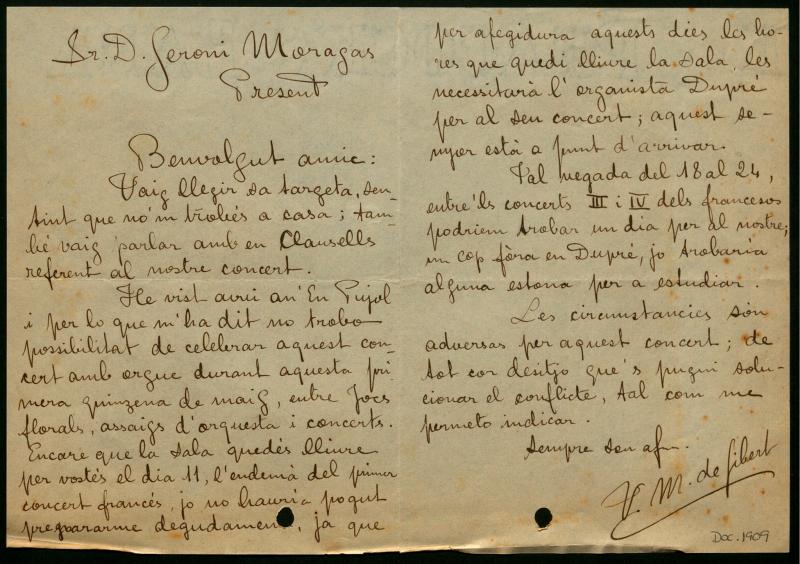 Sr. D. Geroni Moragas
Present
Benvolgut amic:
Vaig llegir sa targeta, sen-
tint que no'm trobés a casa; tam-
bé vaig parlar amb en Clausells
referent al nostre concert.
He vist avui an' En Pujol
i per lo que m'ha dit no trobo
possibilitat de celebrar aquest con-
cert amb orgue durant aquesta pri
mera quinzena de maig, entre Jocs
florals, assaigs d'orquesta i concerts.
Encare que la sala quedés lliure
per vostés el dia 11, l'endemà del primer
concert francés, jo no hauria pogut
prepararme degudament, ja que
per afegidura aquests dies les ho-
res que quedi lliure la sala, les
necessitarà l'organista Dupré
per al seu concert; aquest se-
nyor està a punt d'arrivar.
Tal vegada del 18 al 24,
entre'ls concerts III i IV dels francesos
podriem trobar un dia per al nostre;
un cop fòra en Dupré, jo trobaria
alguna estona per a estudiar.
Les circumstancies són
adversas per aquest concert; de
tot cor desitjo que's pugui solu-
cionar el conflicte, tal com me
permeto indicar.
Sempre son afm.
V. M. de Gibert
Doc. 1909